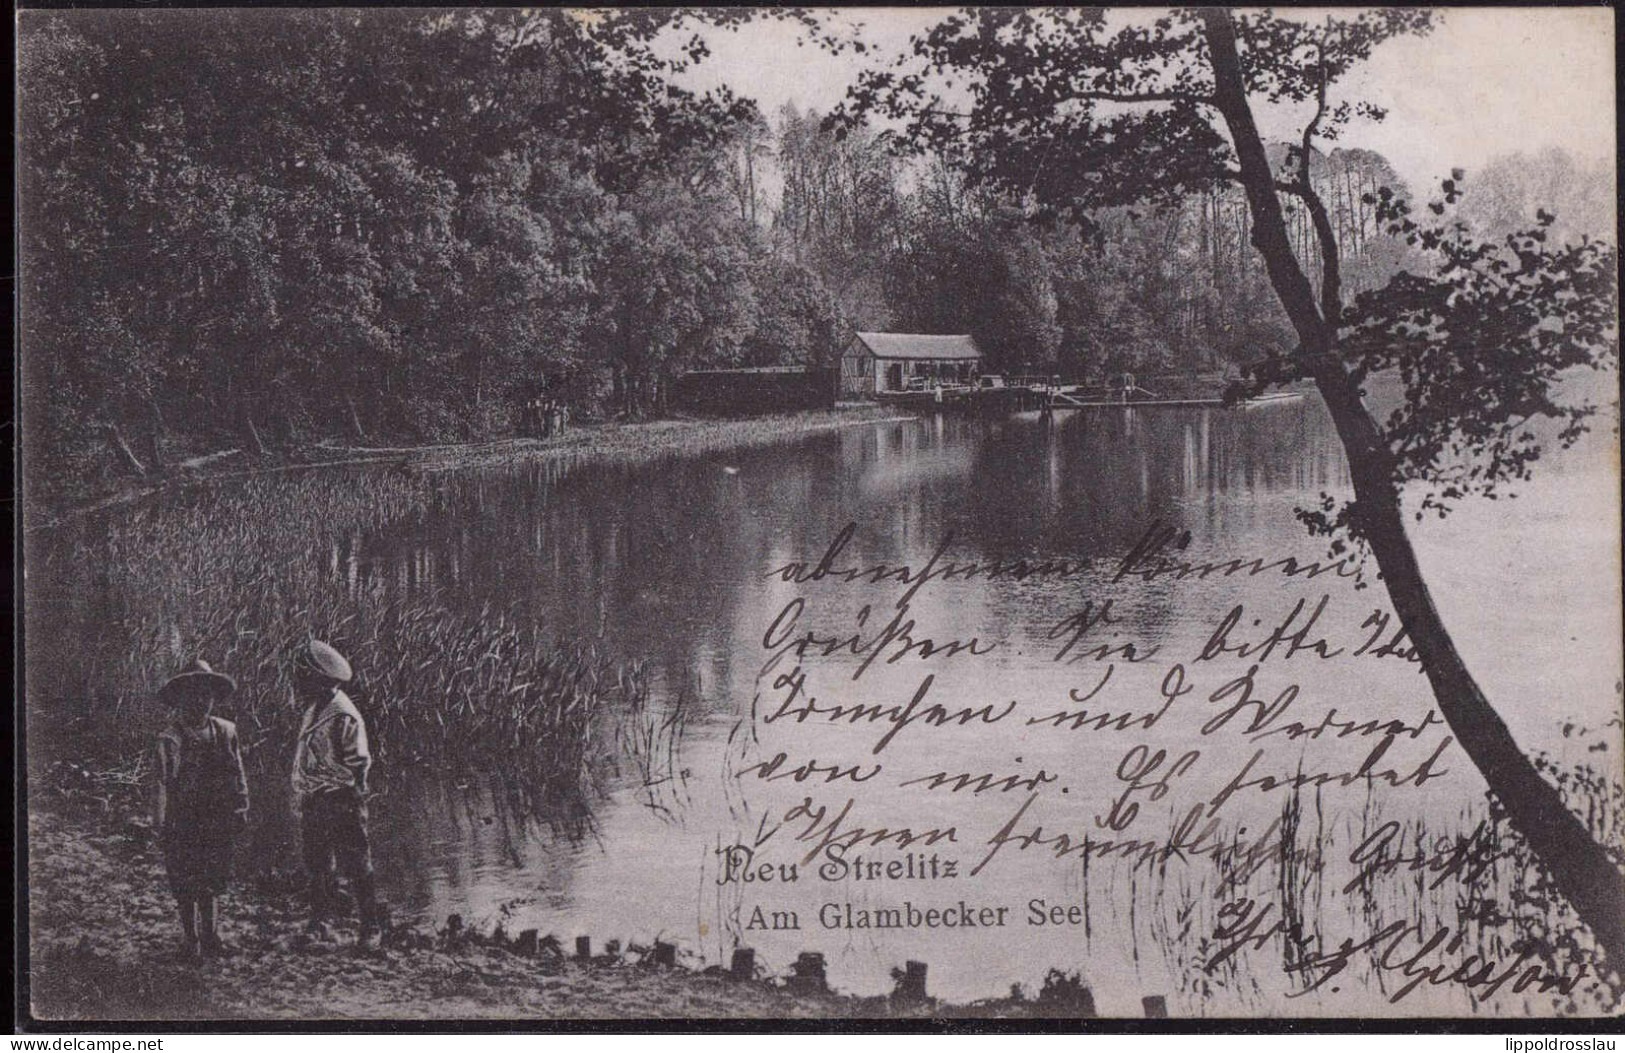 abnehmen können.
Grüßen Sie bitte
und Werner
von mir. Es sendet
Ihnen freundlichen Gruß
Neu Strelitz
Am Glambecker See
Ihr
www.delcampe.net
lippoldrosslau